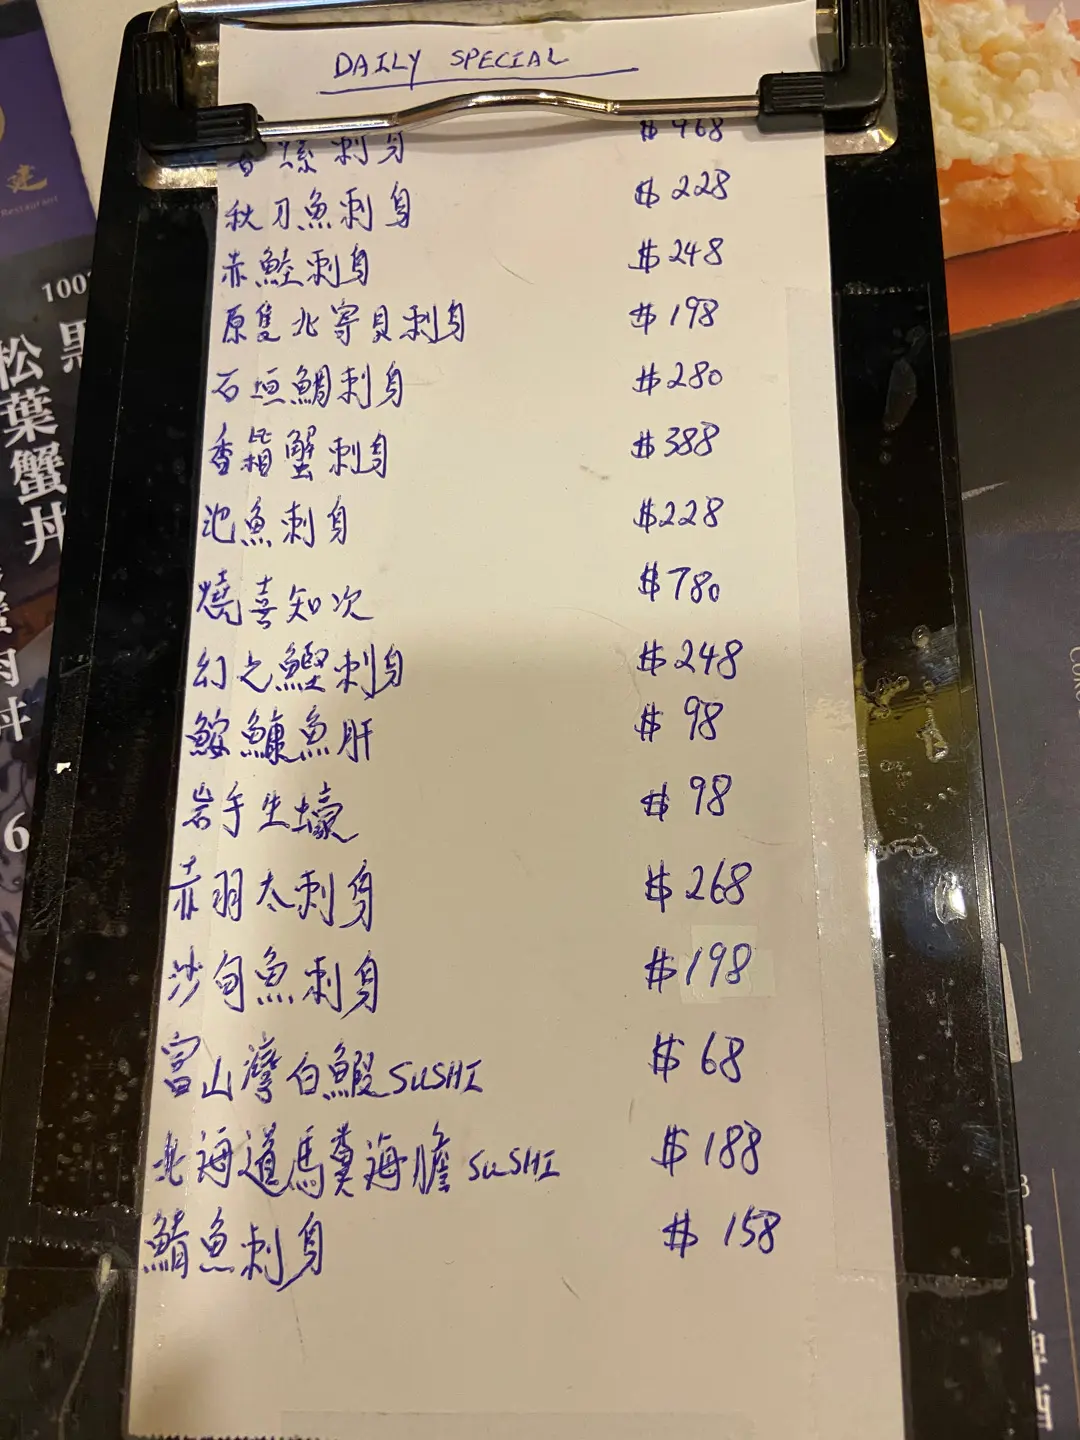 DAILY SPECIAL
刺身 $968
秋刀魚刺身 $228
赤鯥刺身 $248
原隻北寄貝刺身 $198
石垣鯛刺身 $280
香箱蟹刺身 $388
池魚刺身 $228
燒喜知次 $780
幻之鰹刺身 $248
鮟鱇魚肝 $98
岩手生蠔 $98
赤羽太刺身 $268
沙甸魚刺身 $198
富山灣白鰕SUSHI $68
北海道馬糞海膽SUSHI $188
鯖魚刺身 $158
建
Restaurant
100
松葉蟹丼
6